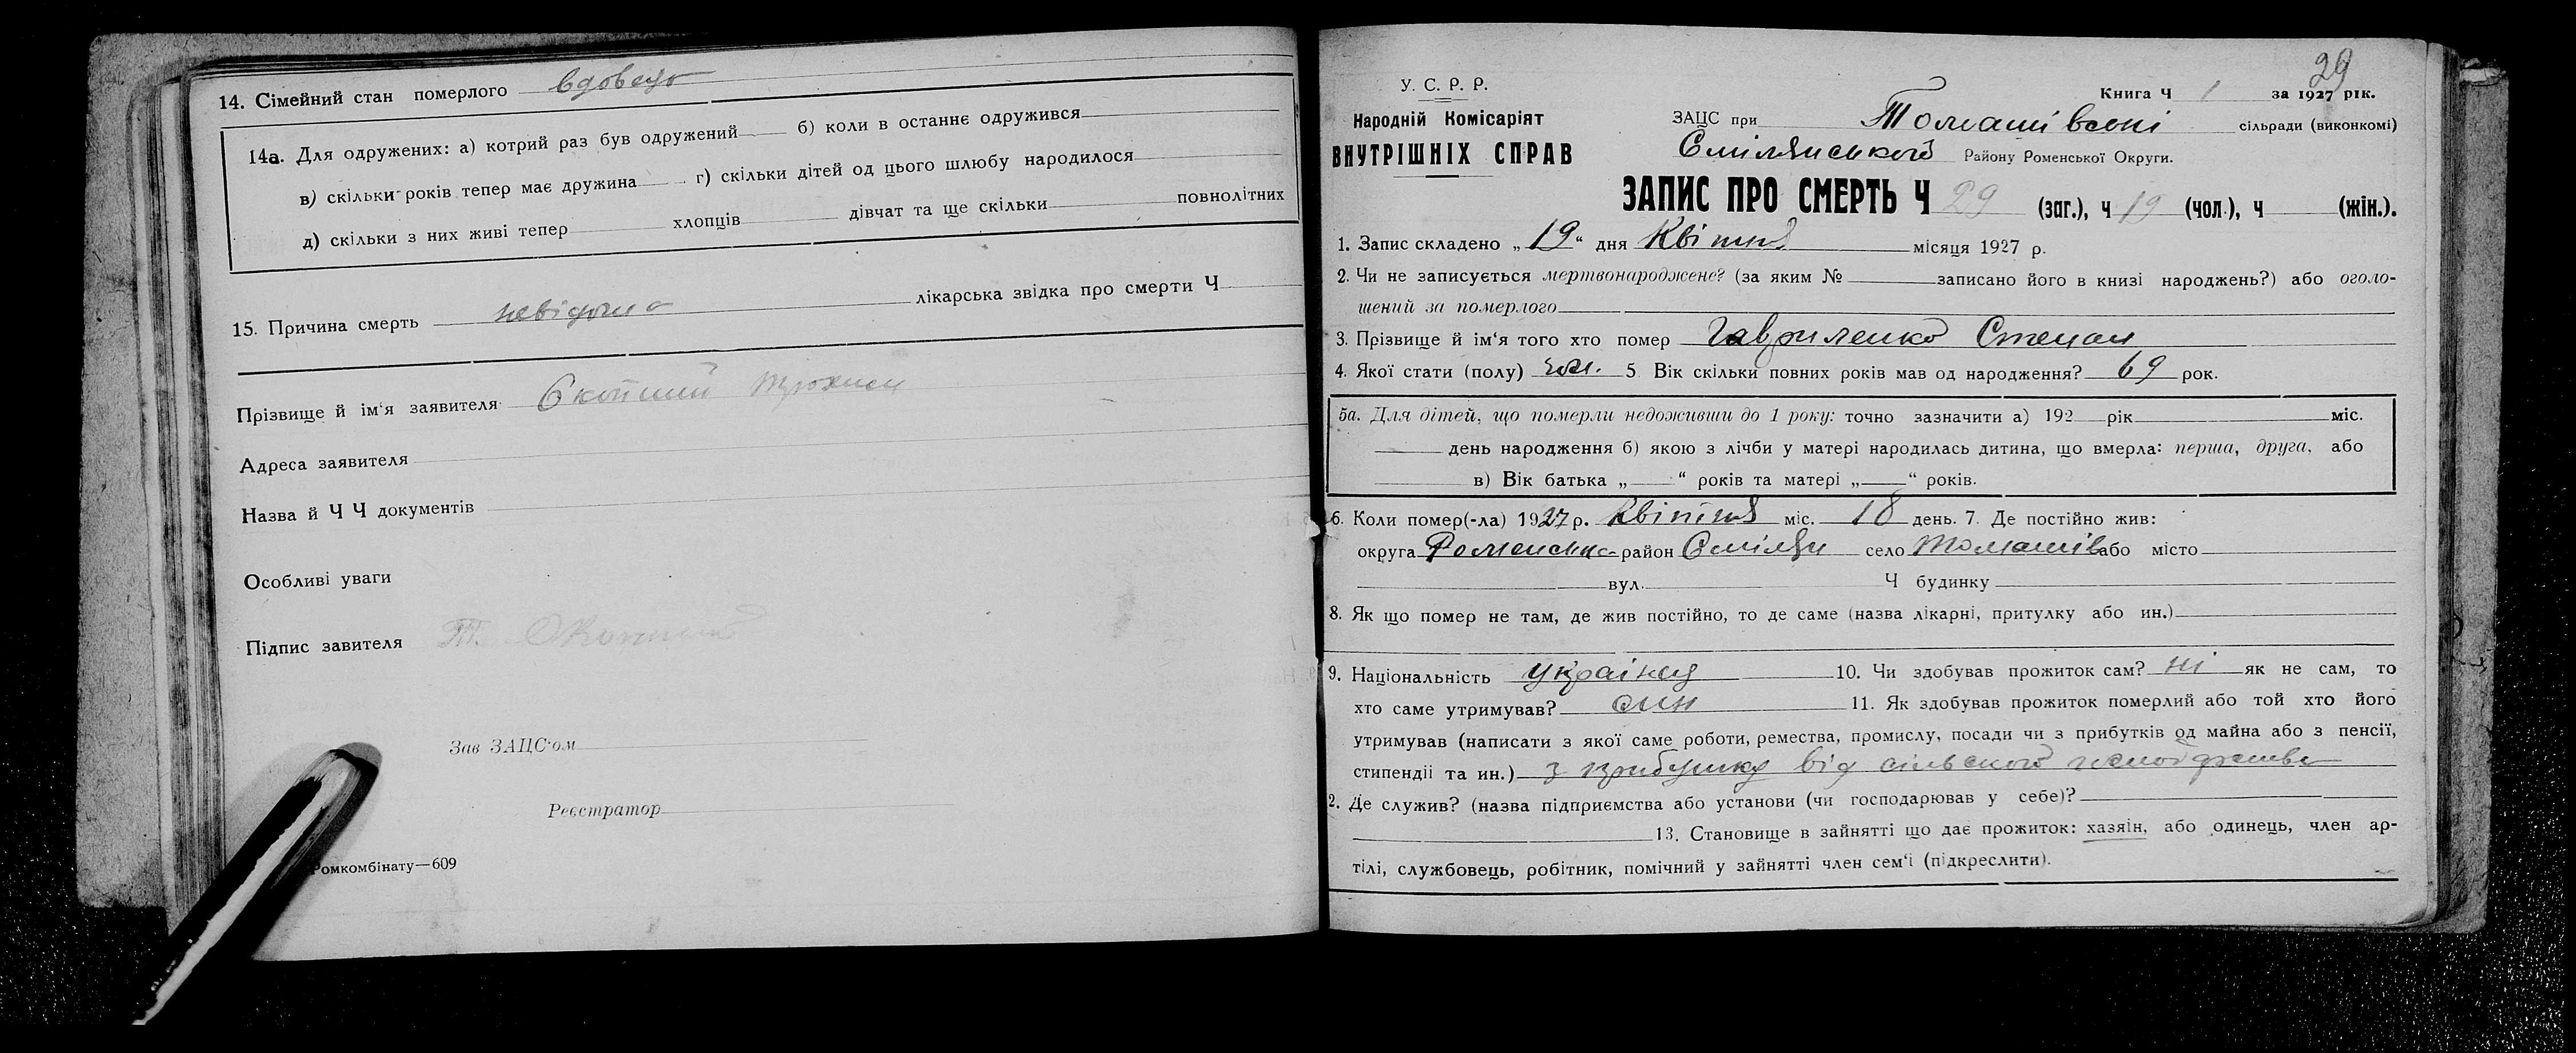 14. Сімейний стан померлого вдовець
14а. Для одружених: а) котрий раз був одружений б) коли в останнє одружився
в) скільки років тепер має дружина г) скільки дітей од цього шлюбу народилося
д) скільки з них живі тепер хлопців дівчат та ще скільки повнолітних
15. Причина смерть невідома лікарська звідка про смерти Ч
Прізвище й ім'я заявителя
Адреса заявителя
Назва й Ч Ч документів
Особливі уваги
Підпис завителя
Зав ЗАЦС'ом
Реєстратор
Ромкомбінату—609
29
У. С. Р. Р.
Книга Ч 1 за 1927 рік.
Народній Комісаріят
ВНУТРІШНІХ СПРАВ
ЗАЦС при Томашівські сільради (виконкомі)
Смілянського Району Роменської Округи.
ЗАПИС ПРО СМЕРТЬ Ч 29 (заг.), ч 19 (чол.), ч (жін.).
1. Запис складено „19“ дня Квітня місяця 1927 р.
2. Чи не записується мертвонароджене? (за яким № записано його в книзі народжень?) або оголо-
шений за померлого
3. Прізвище й ім'я того хто помер Гавриленко Степан
4. Якої стати (полу) чол. 5. Вік скільки повних років мав од народження? 69 рок.
5а. Для дітей, що померли недоживши до 1 року: точно зазначити а) 192 рік міс.
день народження б) якою з лічби у матері народилась дитина, що вмерла: перша, друга, або
в) Вік батька „ “ років та матері „ “ років.
6. Коли помер(-ла) 1927 р. Квітня міс. 18 день. 7. Де постійно жив:
округа Роменська район Смілян село Томашів або місто
вул. Ч будинку
8. Як що помер не там, де жив постійно, то де саме (назва лікарні, притулку або ин.)
9. Національність українец 10. Чи здобував прожиток сам? ні як не сам, то
хто саме утримував? син 11. Як здобував прожиток померлий або той хто його
утримував (написати з якої саме роботи, ремества, промислу, посади чи з прибутків од майна або з пенсії,
стипендії та ин.) з прибутку від сільського господарства
2. Де служив? (назва підприємства або установи (чи господарював у себе)?
13. Становище в зайнятті що дає прожиток: хазяін, або одинець, член ар-
тілі, службовець, робітник, помічний у зайнятті член сем'ї (підкреслити).